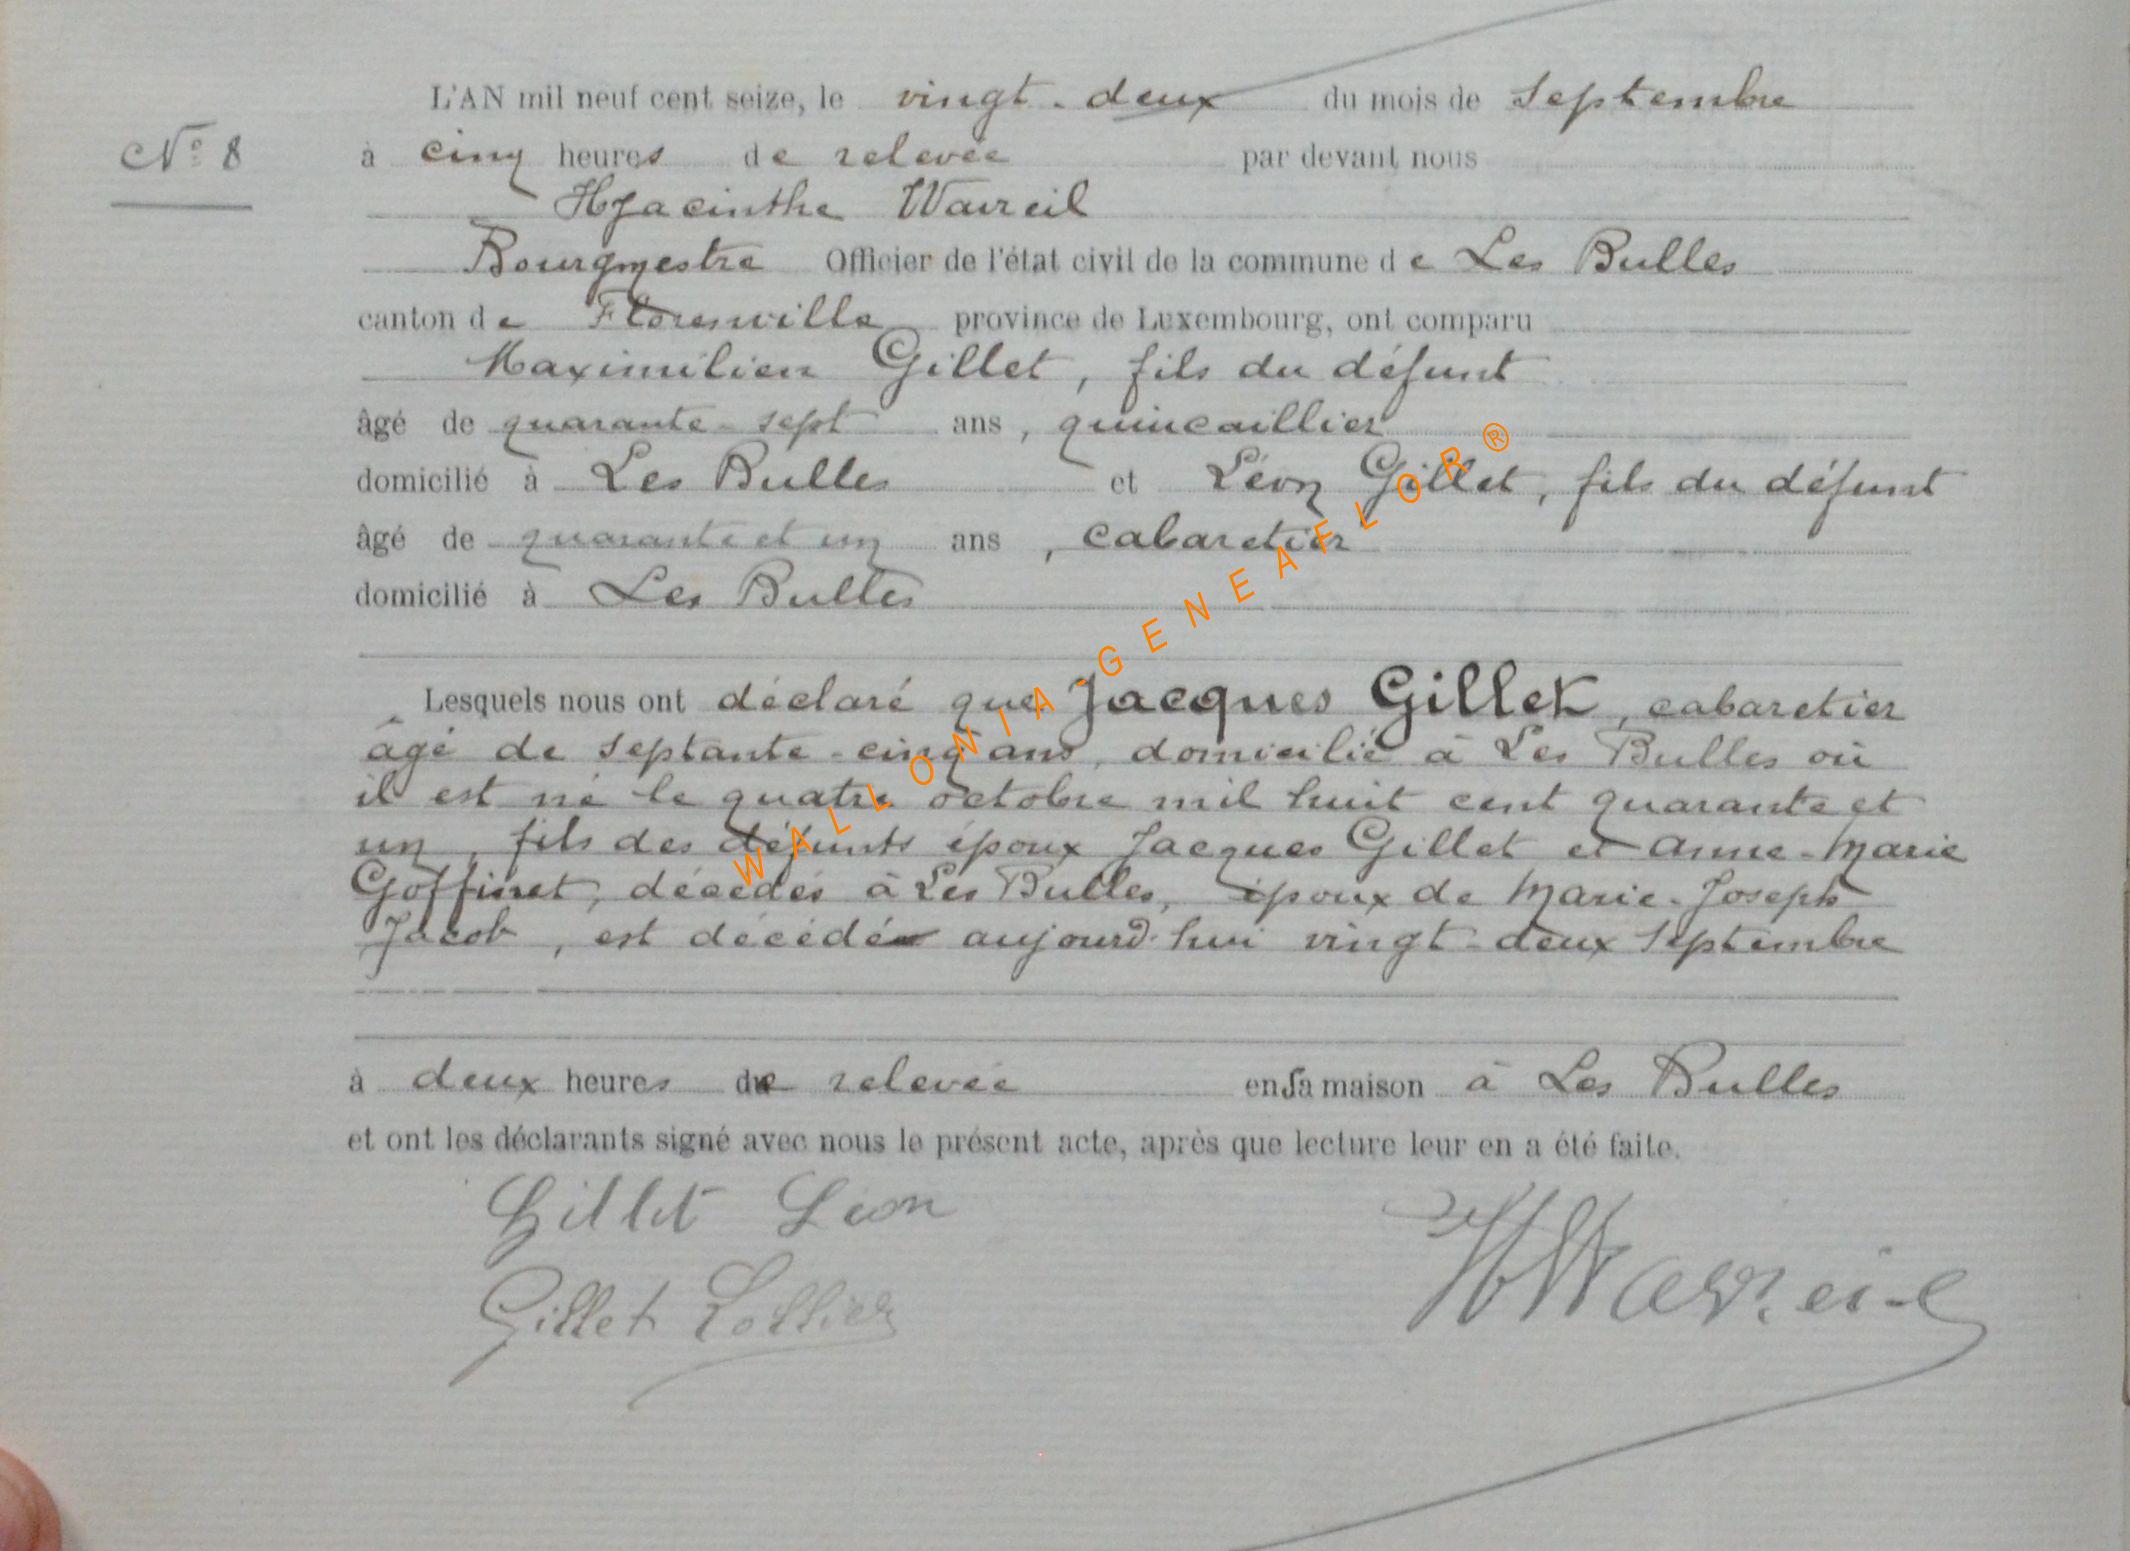 L'AN mil neuf cent seize, le vingt-deux du mois de Septembre
N° 8
à cinq heures de relevée par devant nous
Hyacinthe Wavreil
Bourgmestre Officier de l'état civil de la commune de Les Bulles
canton de Florenville province de Luxembourg, ont comparu
Maximilien Gillet, fils du défunt
âgé de quarante-sept ans, quincaillier
domicilié à Les Bulles et Léon Gillet, fils du défunt
âgé de quarante et un ans, cabaretier
domicilié à Les Bulles
Lesquels nous ont déclaré que Jacques Gillet, cabaretier
âgé de septante-cinq ans, domicilié à Les Bulles où
il est né le quatre octobre mil huit cent quarante et
un, fils des défunts époux Jacques Gillet et Anne-Marie
Goffinet, décédés à Les Bulles, époux de Marie-Joseph
Jacob, est décédé aujourd'hui vingt-deux Septembre
à deux heures de relevée en sa maison à Les Bulles
et ont les déclarants signé avec nous le présent acte, après que lecture leur en a été faite.
Gillet Léon
Gillet Lollier
H Wavreil
WALLONIA-GENEAFLOR®